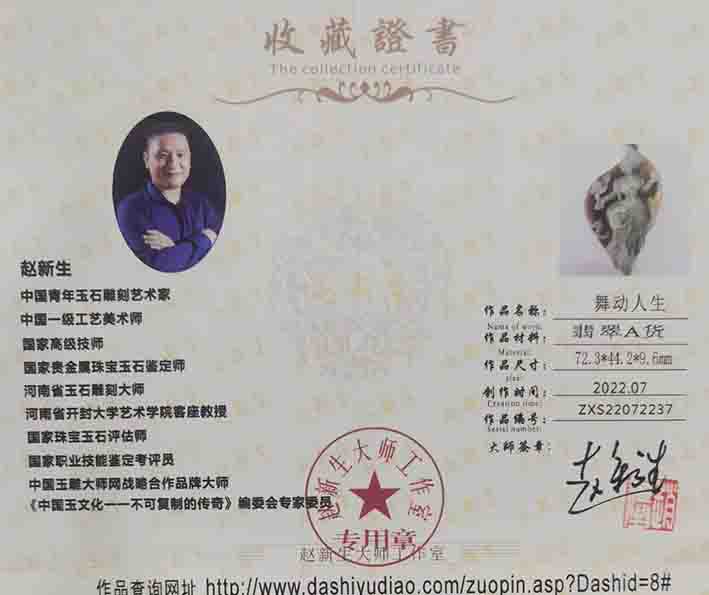 收藏證書
The collection certificate
赵新生
中国青年玉石雕刻艺术家
中国一级工艺美术师
国家高级技师
国家贵金属珠宝玉石鉴定师
河南省玉石雕刻大师
河南省开封大学艺术学院客座教授
国家珠宝玉石评估师
国家职业技能鉴定考评员
中国玉雕大师网战略合作品牌大师
《中国玉文化一一不可复制的传奇》编委会专家委员
作品名称： 舞动人生
Name of work:
作品材料： 翡翠A货
Material:
作品尺寸： 72.3*44.2*9.6mm
size:
创作时间： 2022.07
Creation time:
作品编号： ZXS22072237
Serial number:
大师签章： 赵新生
赵新生大师工作室
专用章
赵新生大师工作室
作品查询网址 http://www.dashiyudiao.com/zuopin.asp?Dashid=8#